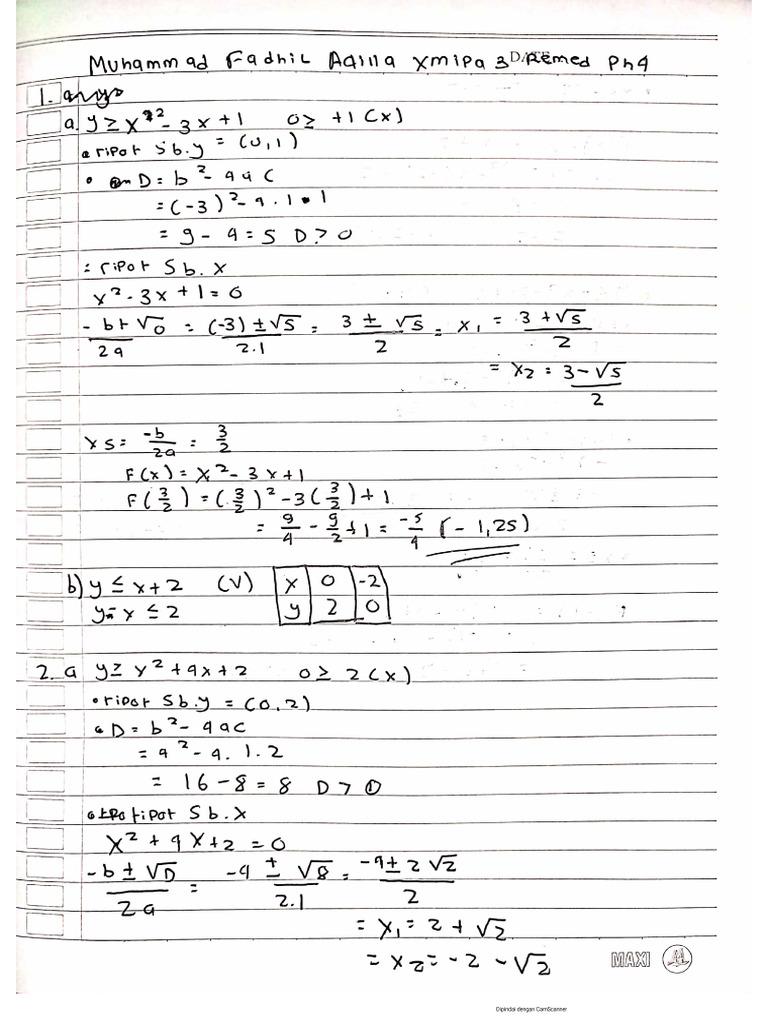 Muhammad Fadhil Aqilla Xmipa 3 Remed Ph4
DATE
1.
a. y ≥ x² - 3x + 1 0 ≥ +1 (x)
• tipot Sb.y = (0,1)
• D = b² - 4ac
= (-3)² - 4.1.1
= 9 - 4 = 5 D > 0
= tipot Sb.x
x² - 3x + 1 = 0
-b + √D / 2a = (-3) ± √5 / 2.1 = 3 ± √5 / 2 = x₁ = 3 + √5 / 2
= x₂ = 3 - √5 / 2
xs = -b/2a = 3/2
F(x) = x² - 3x + 1
F(3/2) = (3/2)² - 3(3/2) + 1
= 9/4 - 9/2 + 1 = -5/4 (-1,25)
b) y ≤ x + 2 (V) x 0 -2
y - x ≤ 2 y 2 0
2. a y ≥ x² + 4x + 2 0 ≥ 2 (x)
• tipot Sb.y = (0,2)
• D = b² - 4ac
= 4² - 4.1.2
= 16 - 8 = 8 D > 0
• tipot Sb.x
x² + 4x + 2 = 0
-b ± √D / 2a = -4 ± √8 / 2.1 = -4 ± 2√2 / 2
= x₁ = 2 + √2
= x₂ = -2 - √2
MAXI
Dipindai dengan CamScanner